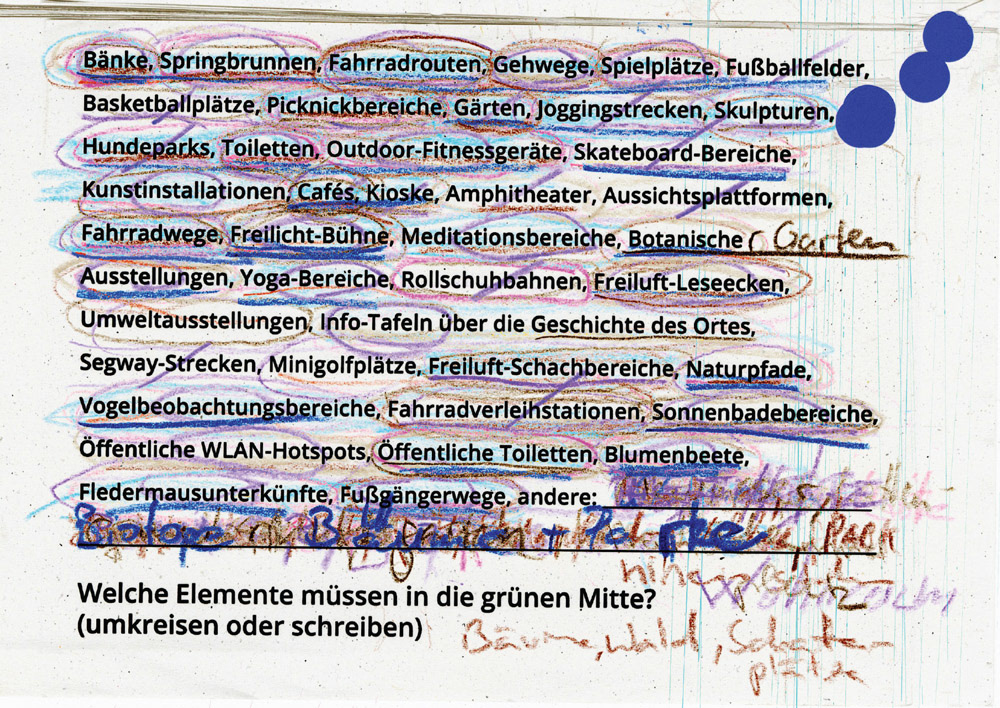 Bänke, Springbrunnen, Fahrradrouten, Gehwege, Spielplätze, Fußballfelder,
Basketballplätze, Picknickbereiche, Gärten, Joggingstrecken, Skulpturen,
Hundeparks, Toiletten, Outdoor-Fitnessgeräte, Skateboard-Bereiche,
Kunstinstallationen, Cafés, Kioske, Amphitheater, Aussichtsplattformen,
Fahrradwege, Freilicht-Bühne, Meditationsbereiche, Botanischer Garten
Ausstellungen, Yoga-Bereiche, Rollschuhbahnen, Freiluft-Leseecken,
Umweltausstellungen, Info-Tafeln über die Geschichte des Ortes,
Segway-Strecken, Minigolfplätze, Freiluft-Schachbereiche, Naturpfade,
Vogelbeobachtungsbereiche, Fahrradverleihstationen, Sonnenbadebereiche,
Öffentliche WLAN-Hotspots, Öffentliche Toiletten, Blumenbeete,
Fledermausunterkünfte, Fußgängerwege, andere:
Biotope
Welche Elemente müssen in die grünen Mitte?
(umkreisen oder schreiben)
Bäume, Wald, Schatten-
plätze